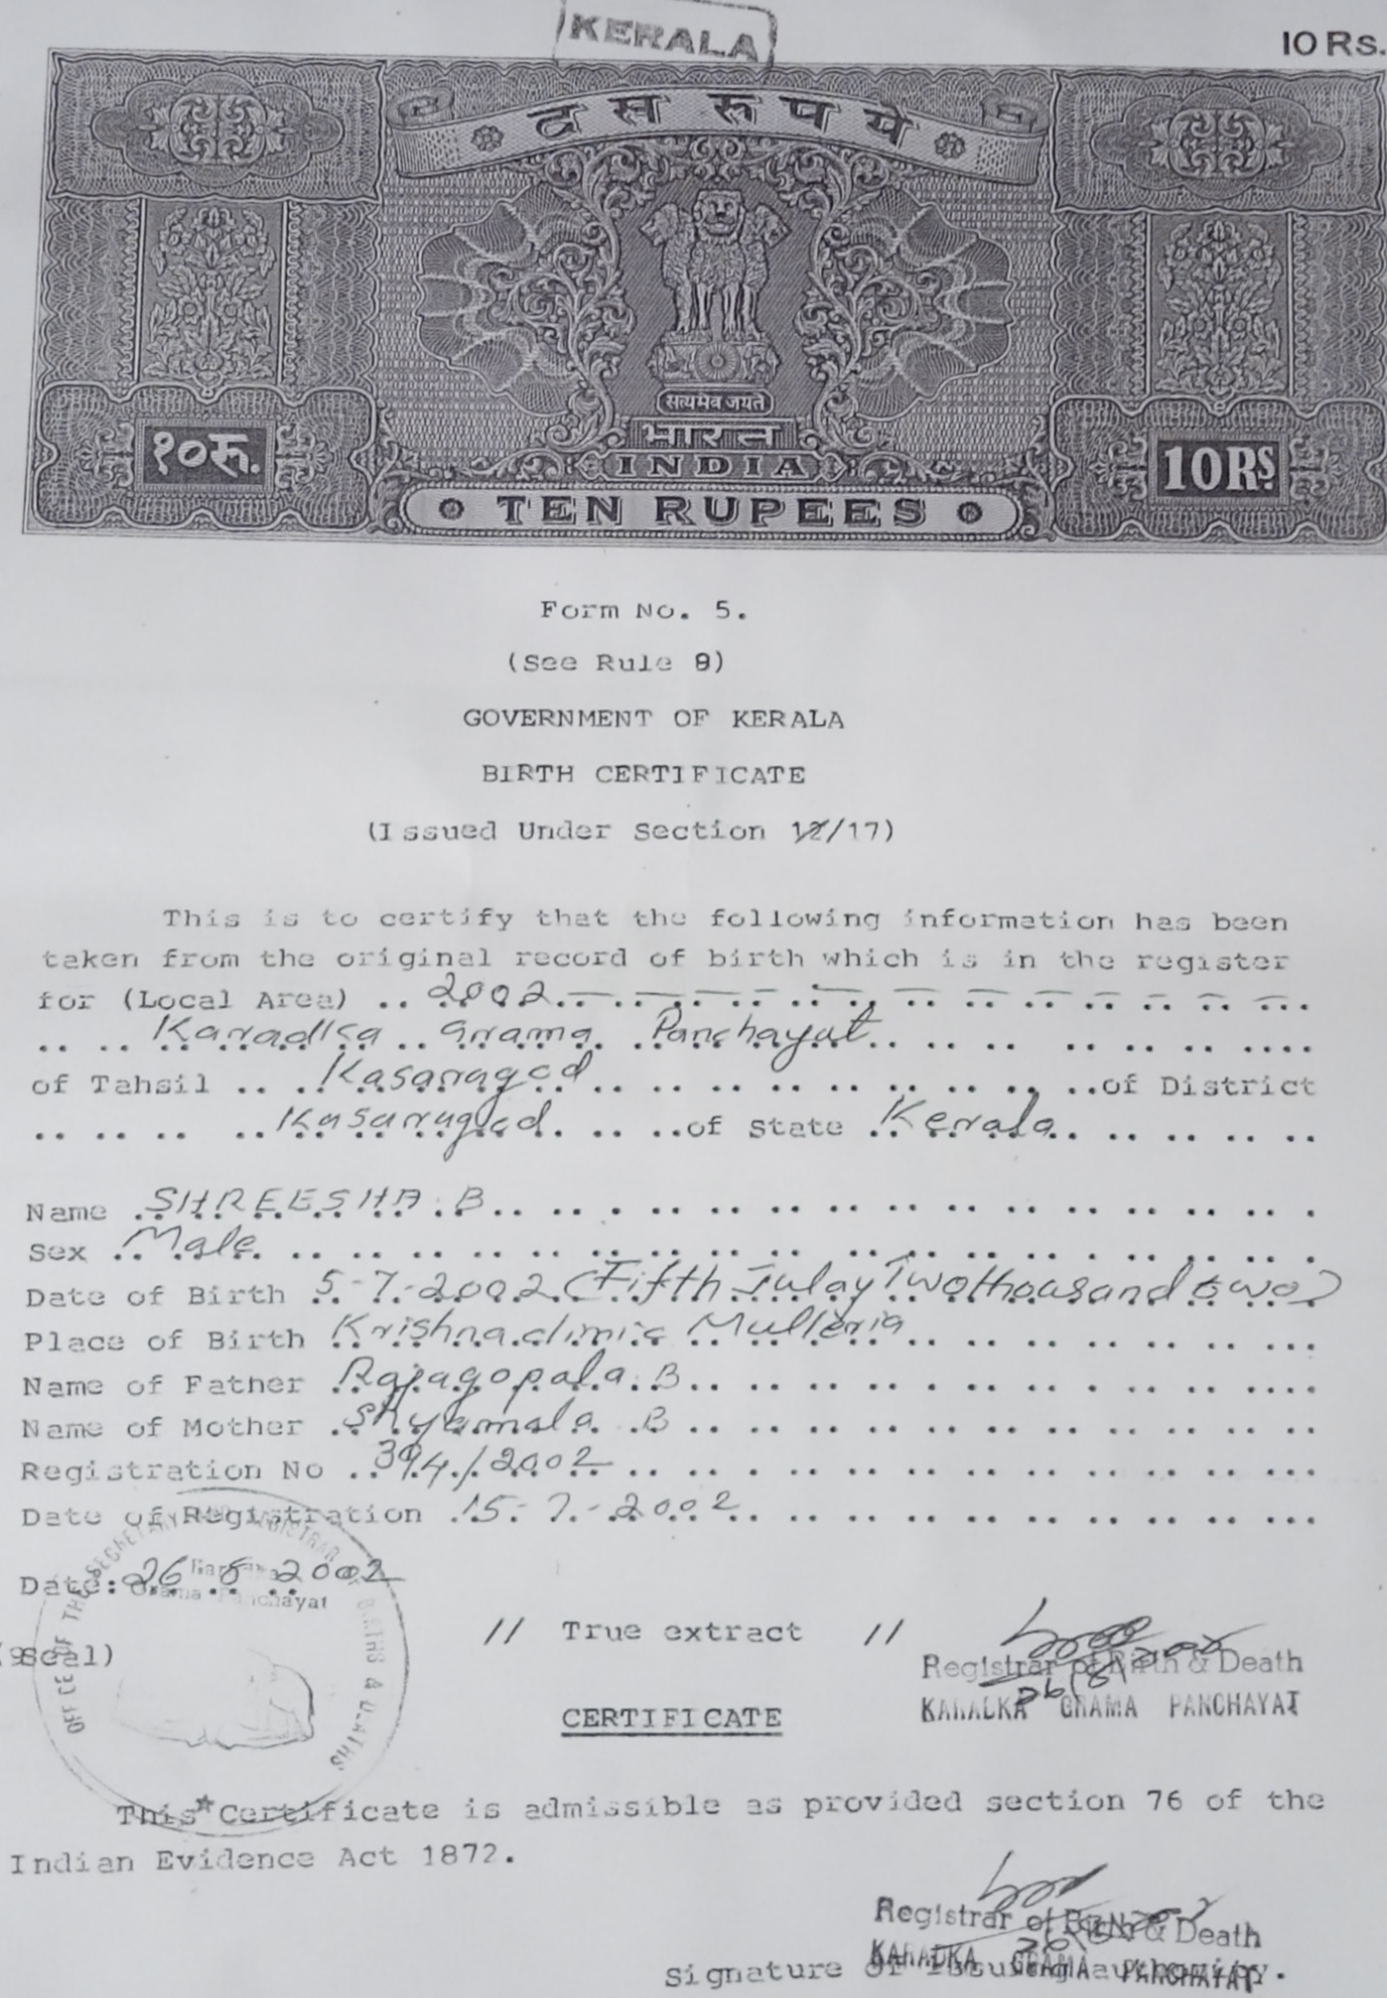 KERALA
10 Rs.
दस रुपये
सत्यमेव जयते
भारत
INDIA
१०रू.
10Rs
TEN RUPEES
Form No. 5.
(See Rule 8)
GOVERNMENT OF KERALA
BIRTH CERTIFICATE
(Issued Under Section 12/17)
This is to certify that the following information has been
taken from the original record of birth which is in the register
for (Local Area) .. 2002
Karadka Grama Panchayat
of Tahsil .. Kasaragod .. of District
Kasaragod .. of State Kerala
Name SHREESHA. B
Sex Male
Date of Birth 5-7-2002 (Fifth Julay Twothousand two)
Place of Birth Krishna clinic Mulleria
Name of Father Rajagopala. B
Name of Mother Shyamala B
Registration No 394/2002
Date of Registration 15-7-2002
Date: 26.8.2002
Grama Panchayat
OFFICE OF THE SECRETARY AND REGISTRAR OF BIRTHS & DEATHS
(Seal)
// True extract //
Registrar of Birth & Death
26/8/2002
KARADKA GRAMA PANCHAYAT
CERTIFICATE
This Certificate is admissible as provided section 76 of the
Indian Evidence Act 1872.
Registrar of Birth & Death
KARADKA GRAMA PANCHAYAT
Signature of Issuing authority.